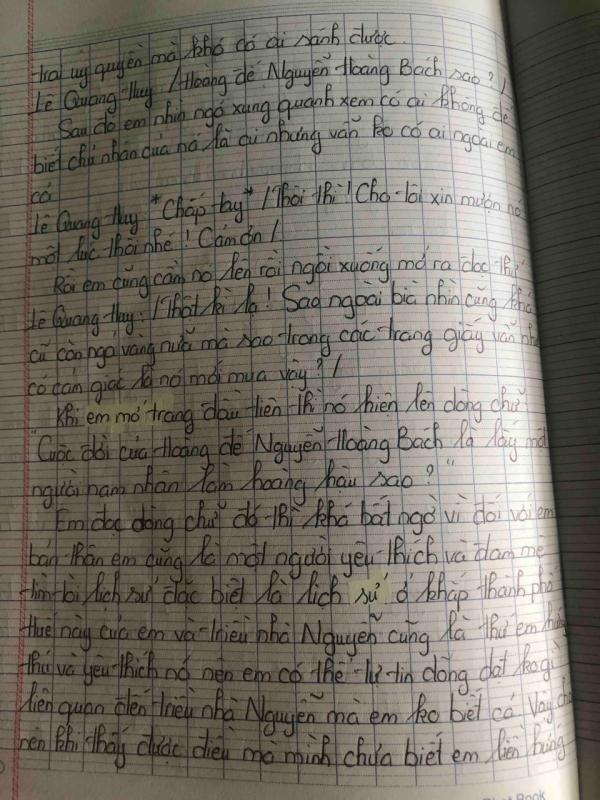 trai uy quyền mà khó có ai sánh được.
Lê Quang Huy: /Hoàng đế Nguyễn Hoàng Bách sao?/
Sau đó em nhìn ngó xung quanh xem có ai không để
biết chủ nhân của nó là ai nhưng vẫn ko có ai ngoài em
cả
Lê Quang Huy: *Chấp tay* /Thôi thì! Cho tôi xin mượn nó
một lúc thôi nhé! Cảm ơn/
Rồi em cũng cầm nó lên rồi ngồi xuống mở ra đọc thử
Lê Quang Huy: /Thật kì lạ! Sao ngoài bìa nhìn cũng khá
cũ còn ngả vàng nữa mà sao trong các trang giấy vẫn như
có cảm giác là nó mới mua vậy?/
Khi em mở trang đầu tiên thì nó hiện lên dòng chữ
"Cuộc đời của Hoàng đế Nguyễn Hoàng Bách là lấy một
người nam nhân làm hoàng hậu sao?"
Em đọc dòng chữ đó thì khá bất ngờ vì đối với em
bản thân em cũng là một người yêu thích và đam mê
tìm tòi lịch sử đặc biệt là lịch sử ở khắp thành phố
Huế này của em và triều nhà Nguyễn cũng là thứ em hứng
thú và yêu thích nó nên em có thể tự tin dõng dạt ko gì
liên quan đến triều nhà Nguyễn mà em ko biết cả. Vậy cho
nên khi thấy được điều mà mình chưa biết em liền hứng
Book